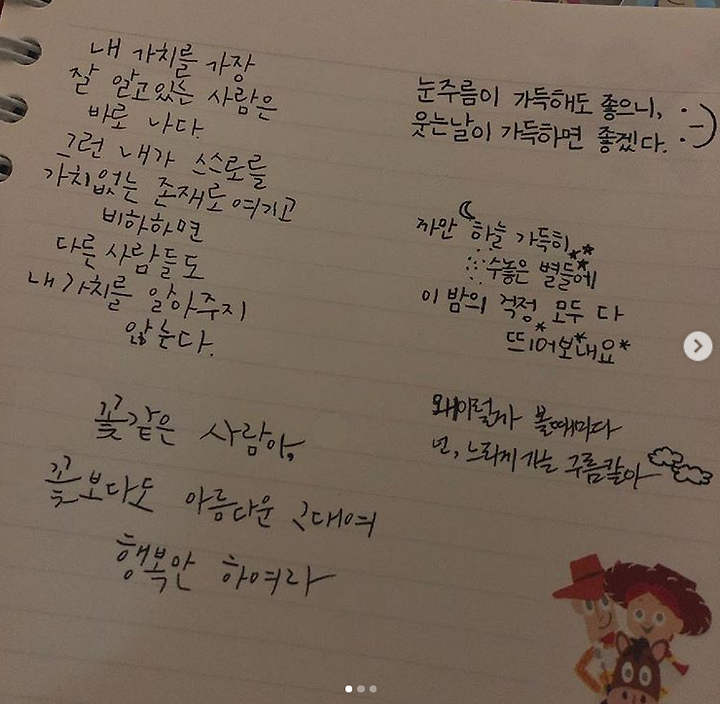 내 가치를 가장
잘 알고있는 사람은
바로 나다.
그런 내가 스스로를
가치없는 존재로 여기고
비하하면
다른 사람들도
내 가치를 알아주지
않는다.
꽃같은 사람아,
꽃보다도 아름다운 그대여
행복만 하여라
눈주름이 가득해도 좋으니,
웃는날이 가득하면 좋겠다. :-)
까만 하늘 가득히
수놓은 별들에
이 밤의 걱정 모두 다
띄어보내요
왜이럴까 볼때마다
넌, 느리게가는 구름같아